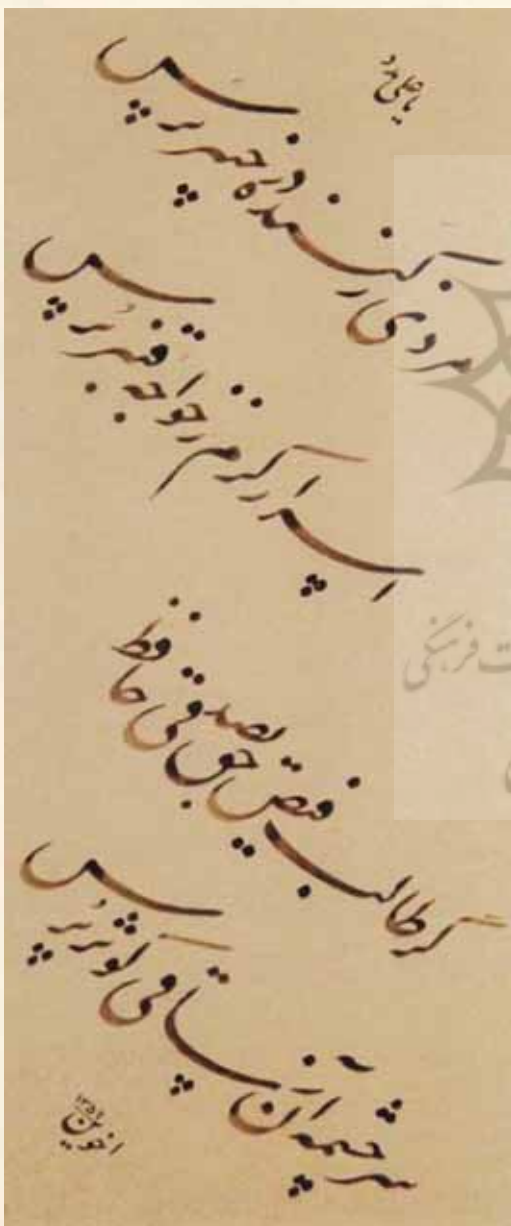 یا علی مدد
مردی ز کننده در خیبر پرس
اسرار کرم ز خواجه قنبر پرس
گر طالب فیض حق بصدقی حافظ
سرچشمه آن ز ساقی کوثر پرس
اخوین
ت فرهنگی